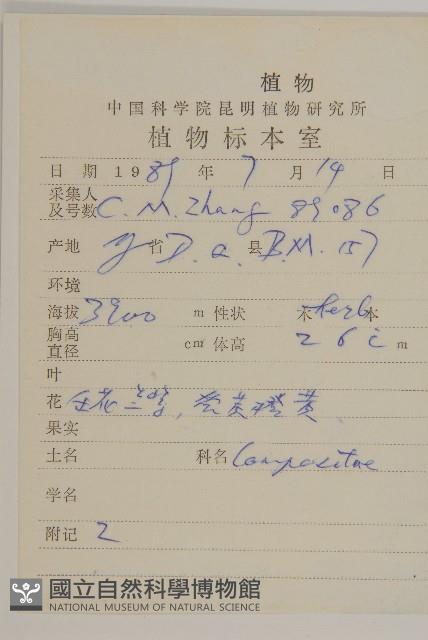 植物
中国科学院昆明植物研究所
植物标本室
日期 1989 年 7 月 14 日
采集人
及号数 C. M. Zhang 89086
产地 省 D. Q. 县 B.M. 157
环境
海拔 3900 m 性状 木 herb 本
胸高
直径 cm 体高 26 c m
叶
花 兰紫, 黄
果实
土名 科名 Compositae
学名
附记 2
國立自然科學博物館
NATIONAL MUSEUM OF NATURAL SCIENCE